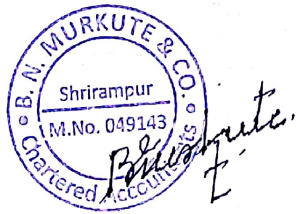 B. N. MURKUTE & CO.
Shrirampur
M.No. 049143
Chartered Accountants